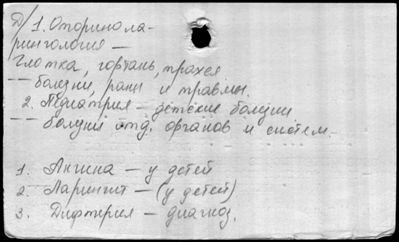 Д/1. Оторинола-
рингология —
Глотка, гортань, трахея
— болезни, раны и травмы.
2. Педиатрия — детские болезни
— болезни отд. органов и систем.
1. Ангина — у детей
2. Ларингит — (у детей)
3. Дифтерия — диагноз.